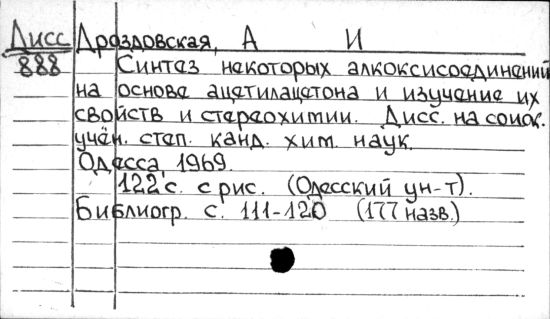 Дисс Дроздовская, А И
888 Синтез некоторых алкоксисоединений
на основе ацетилацетона и изучение их
свойств и стереохимии. Дисс. на соиск.
учён. степ. канд. хим. наук.
Одесса 1969.
122 с. с рис. (Одесский ун-т).
Библиогр. с. 111-120 (177 назв.)